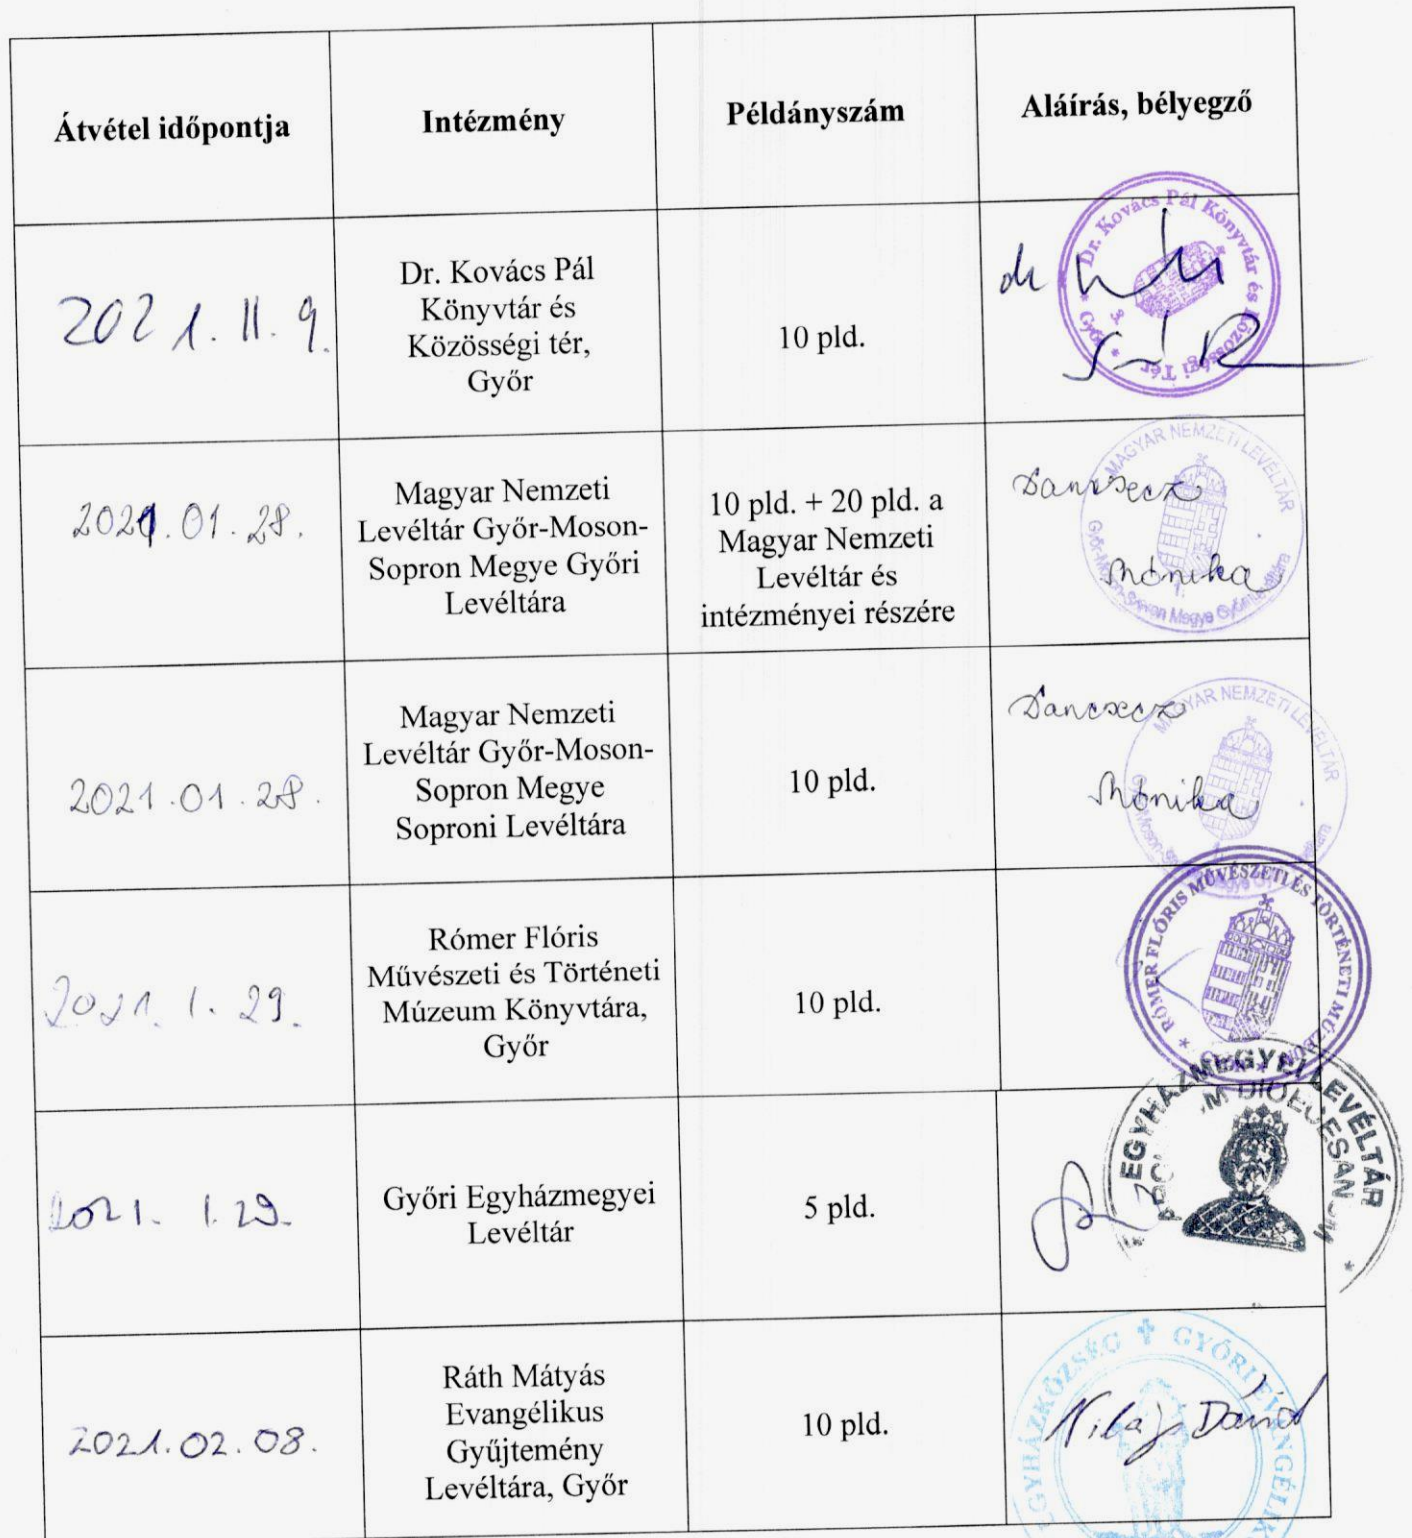 Átvétel időpontja
Intézmény
Példányszám
Aláírás, bélyegző
2021. II. 9.
Dr. Kovács Pál
Könyvtár és
Közösségi tér,
Győr
10 pld.
dr
Dr. Kovács Pál Könyvtár és Közösségi Tér * Győr *
2021.01.28.
Magyar Nemzeti
Levéltár Győr-Moson-
Sopron Megye Győri
Levéltára
10 pld. + 20 pld. a
Magyar Nemzeti
Levéltár és
intézményei részére
Dancsecz
Mónika
MAGYAR NEMZETI LEVÉLTÁR
Győr-Moson-Sopron Megye Győri Levéltára
1.
2021.01.28.
Magyar Nemzeti
Levéltár Győr-Moson-
Sopron Megye
Soproni Levéltára
10 pld.
Dancsecz
Mónika
MAGYAR NEMZETI LEVÉLTÁR
2021. 1. 29.
Rómer Flóris
Művészeti és Történeti
Múzeum Könyvtára,
Győr
10 pld.
RÓMER FLÓRIS MŰVÉSZETI ÉS TÖRTÉNETI MÚZEUM
2021. 1.29.
Győri Egyházmegyei
Levéltár
5 pld.
EGYHÁZMEGYEI LEVÉLTÁR
2021.02.08.
Ráth Mátyás
Evangélikus
Gyűjtemény
Levéltára, Győr
10 pld.
Dávid
EGYHÁZKÖZSÉG ✝ GYŐRI EVANGÉLIK